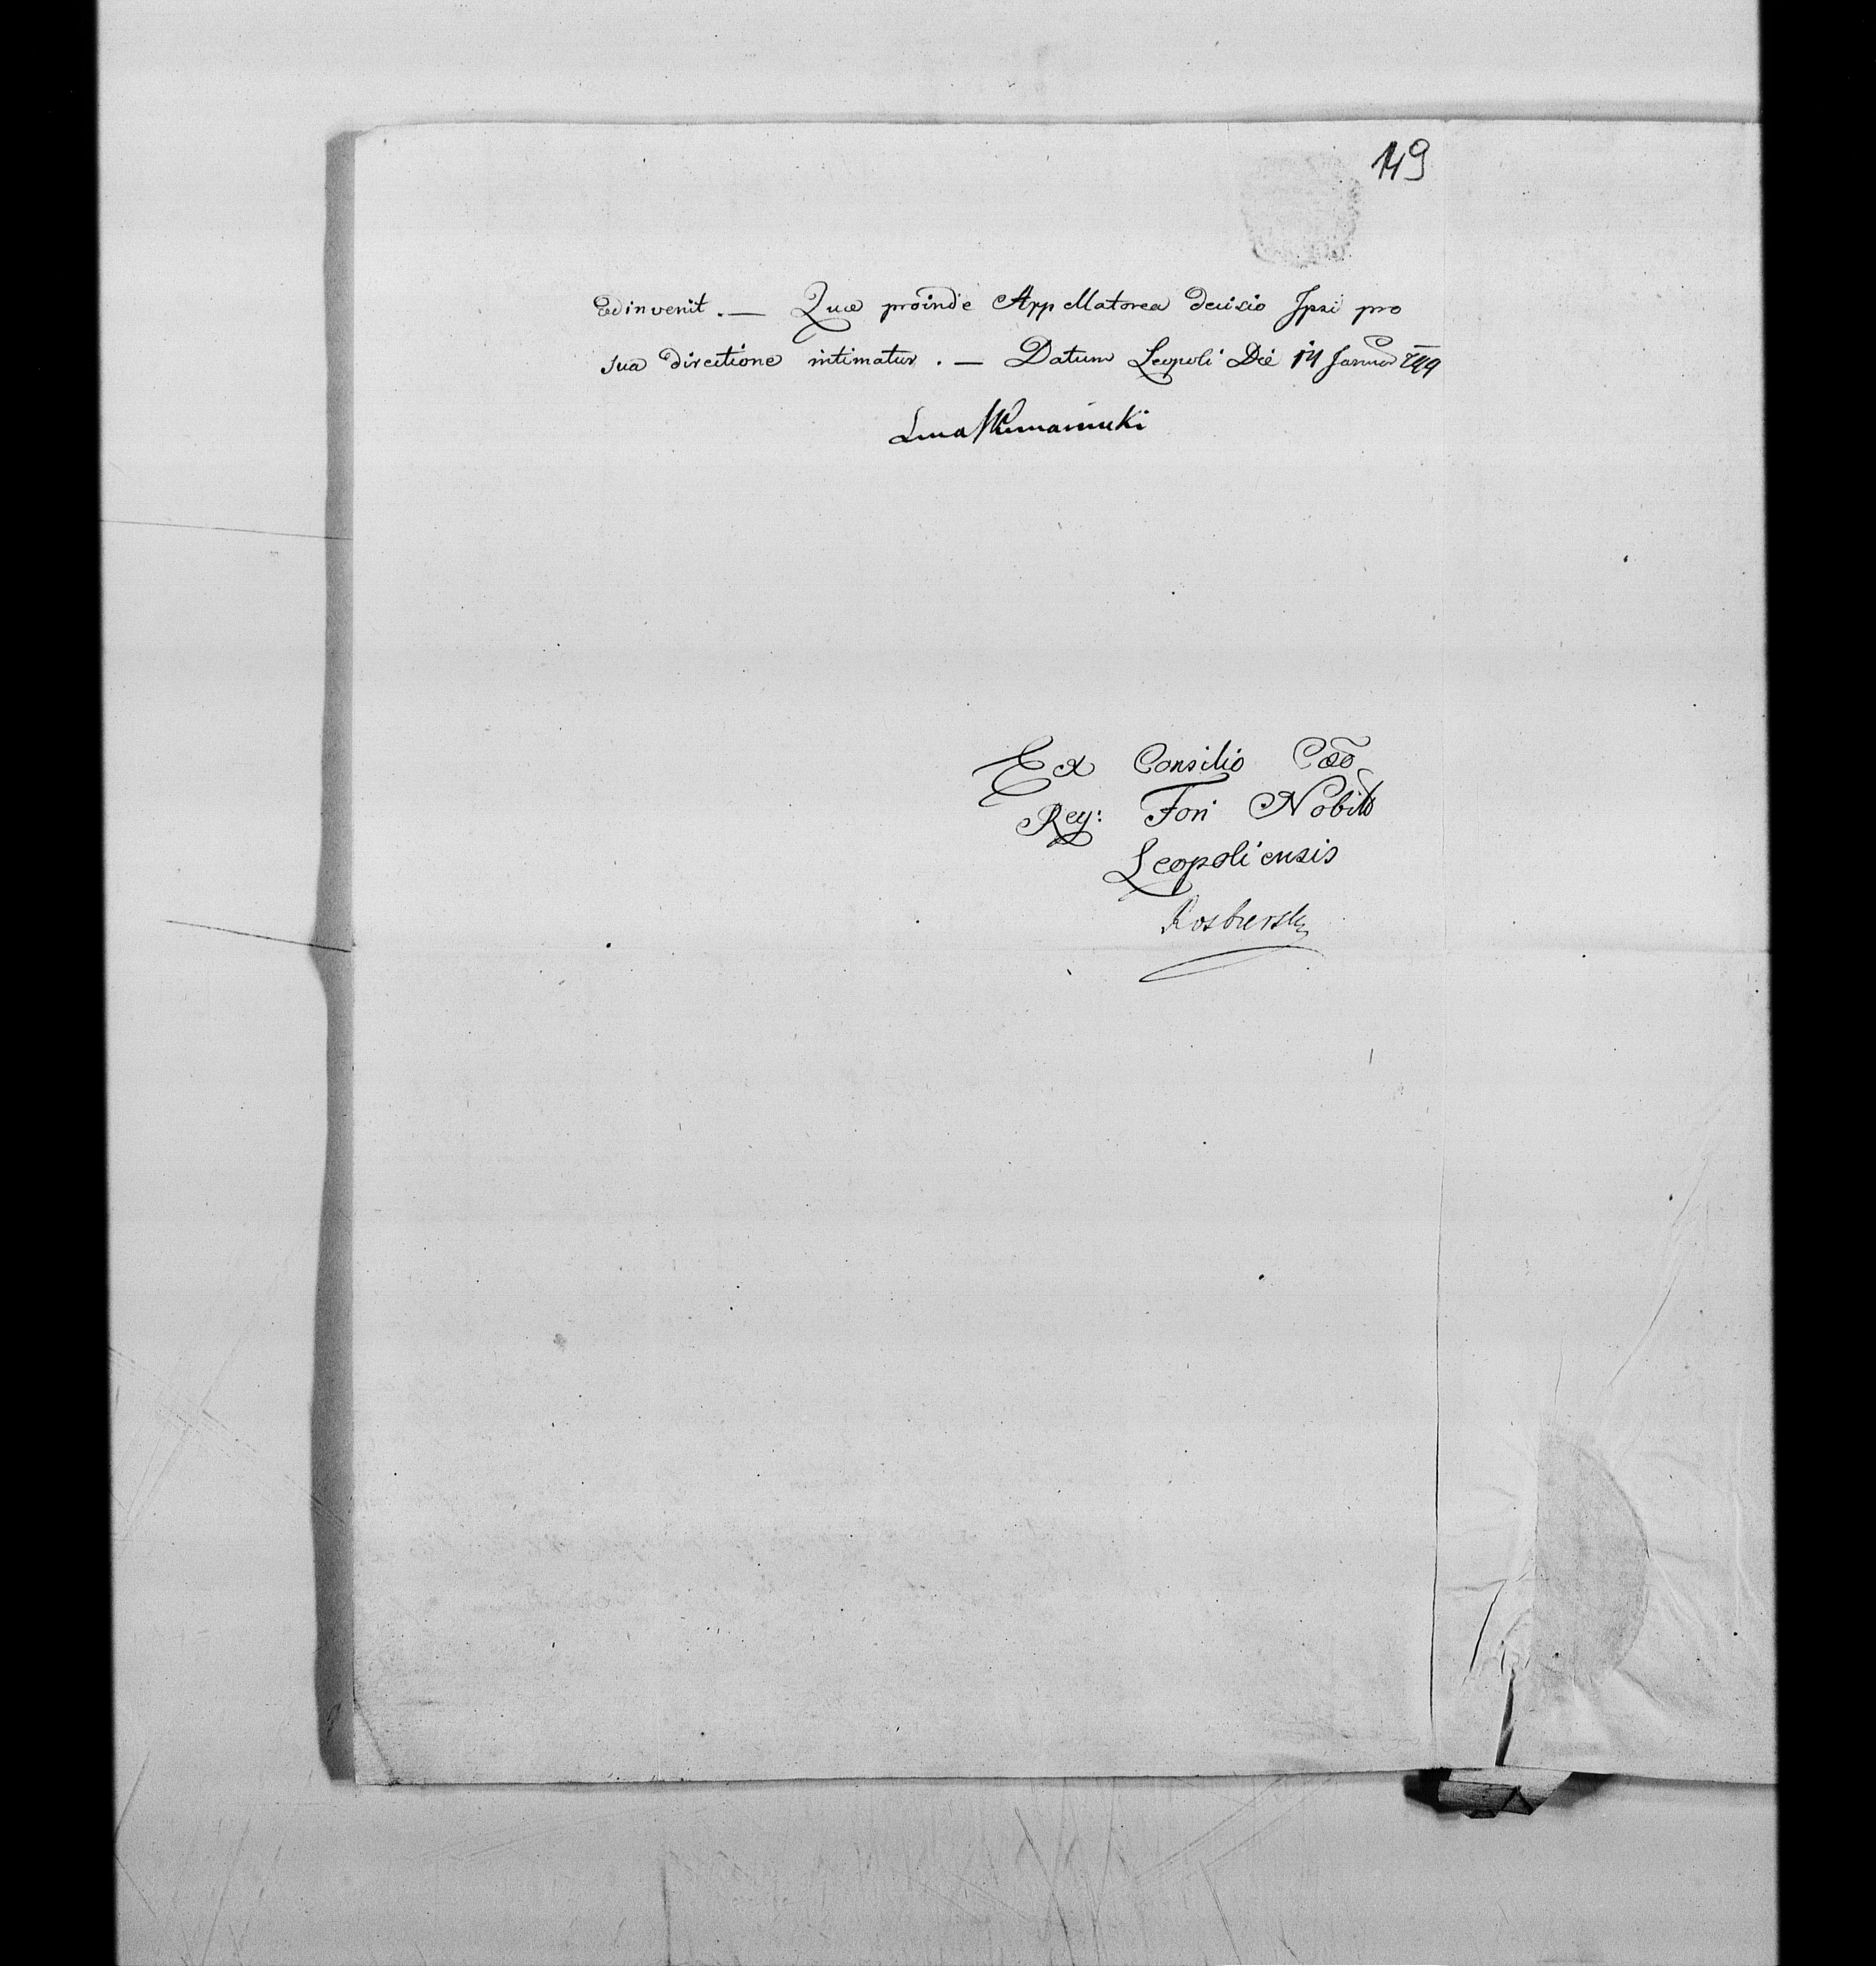 149
adinvenit. — Quæ proinde Appellatorea decisio Ipsi pro
sua directione intimatur. — Datum Leopoli Die 14 Januar 799
Ex Consilio Cæo
Reg: Fori Nobil
Leopoliensis